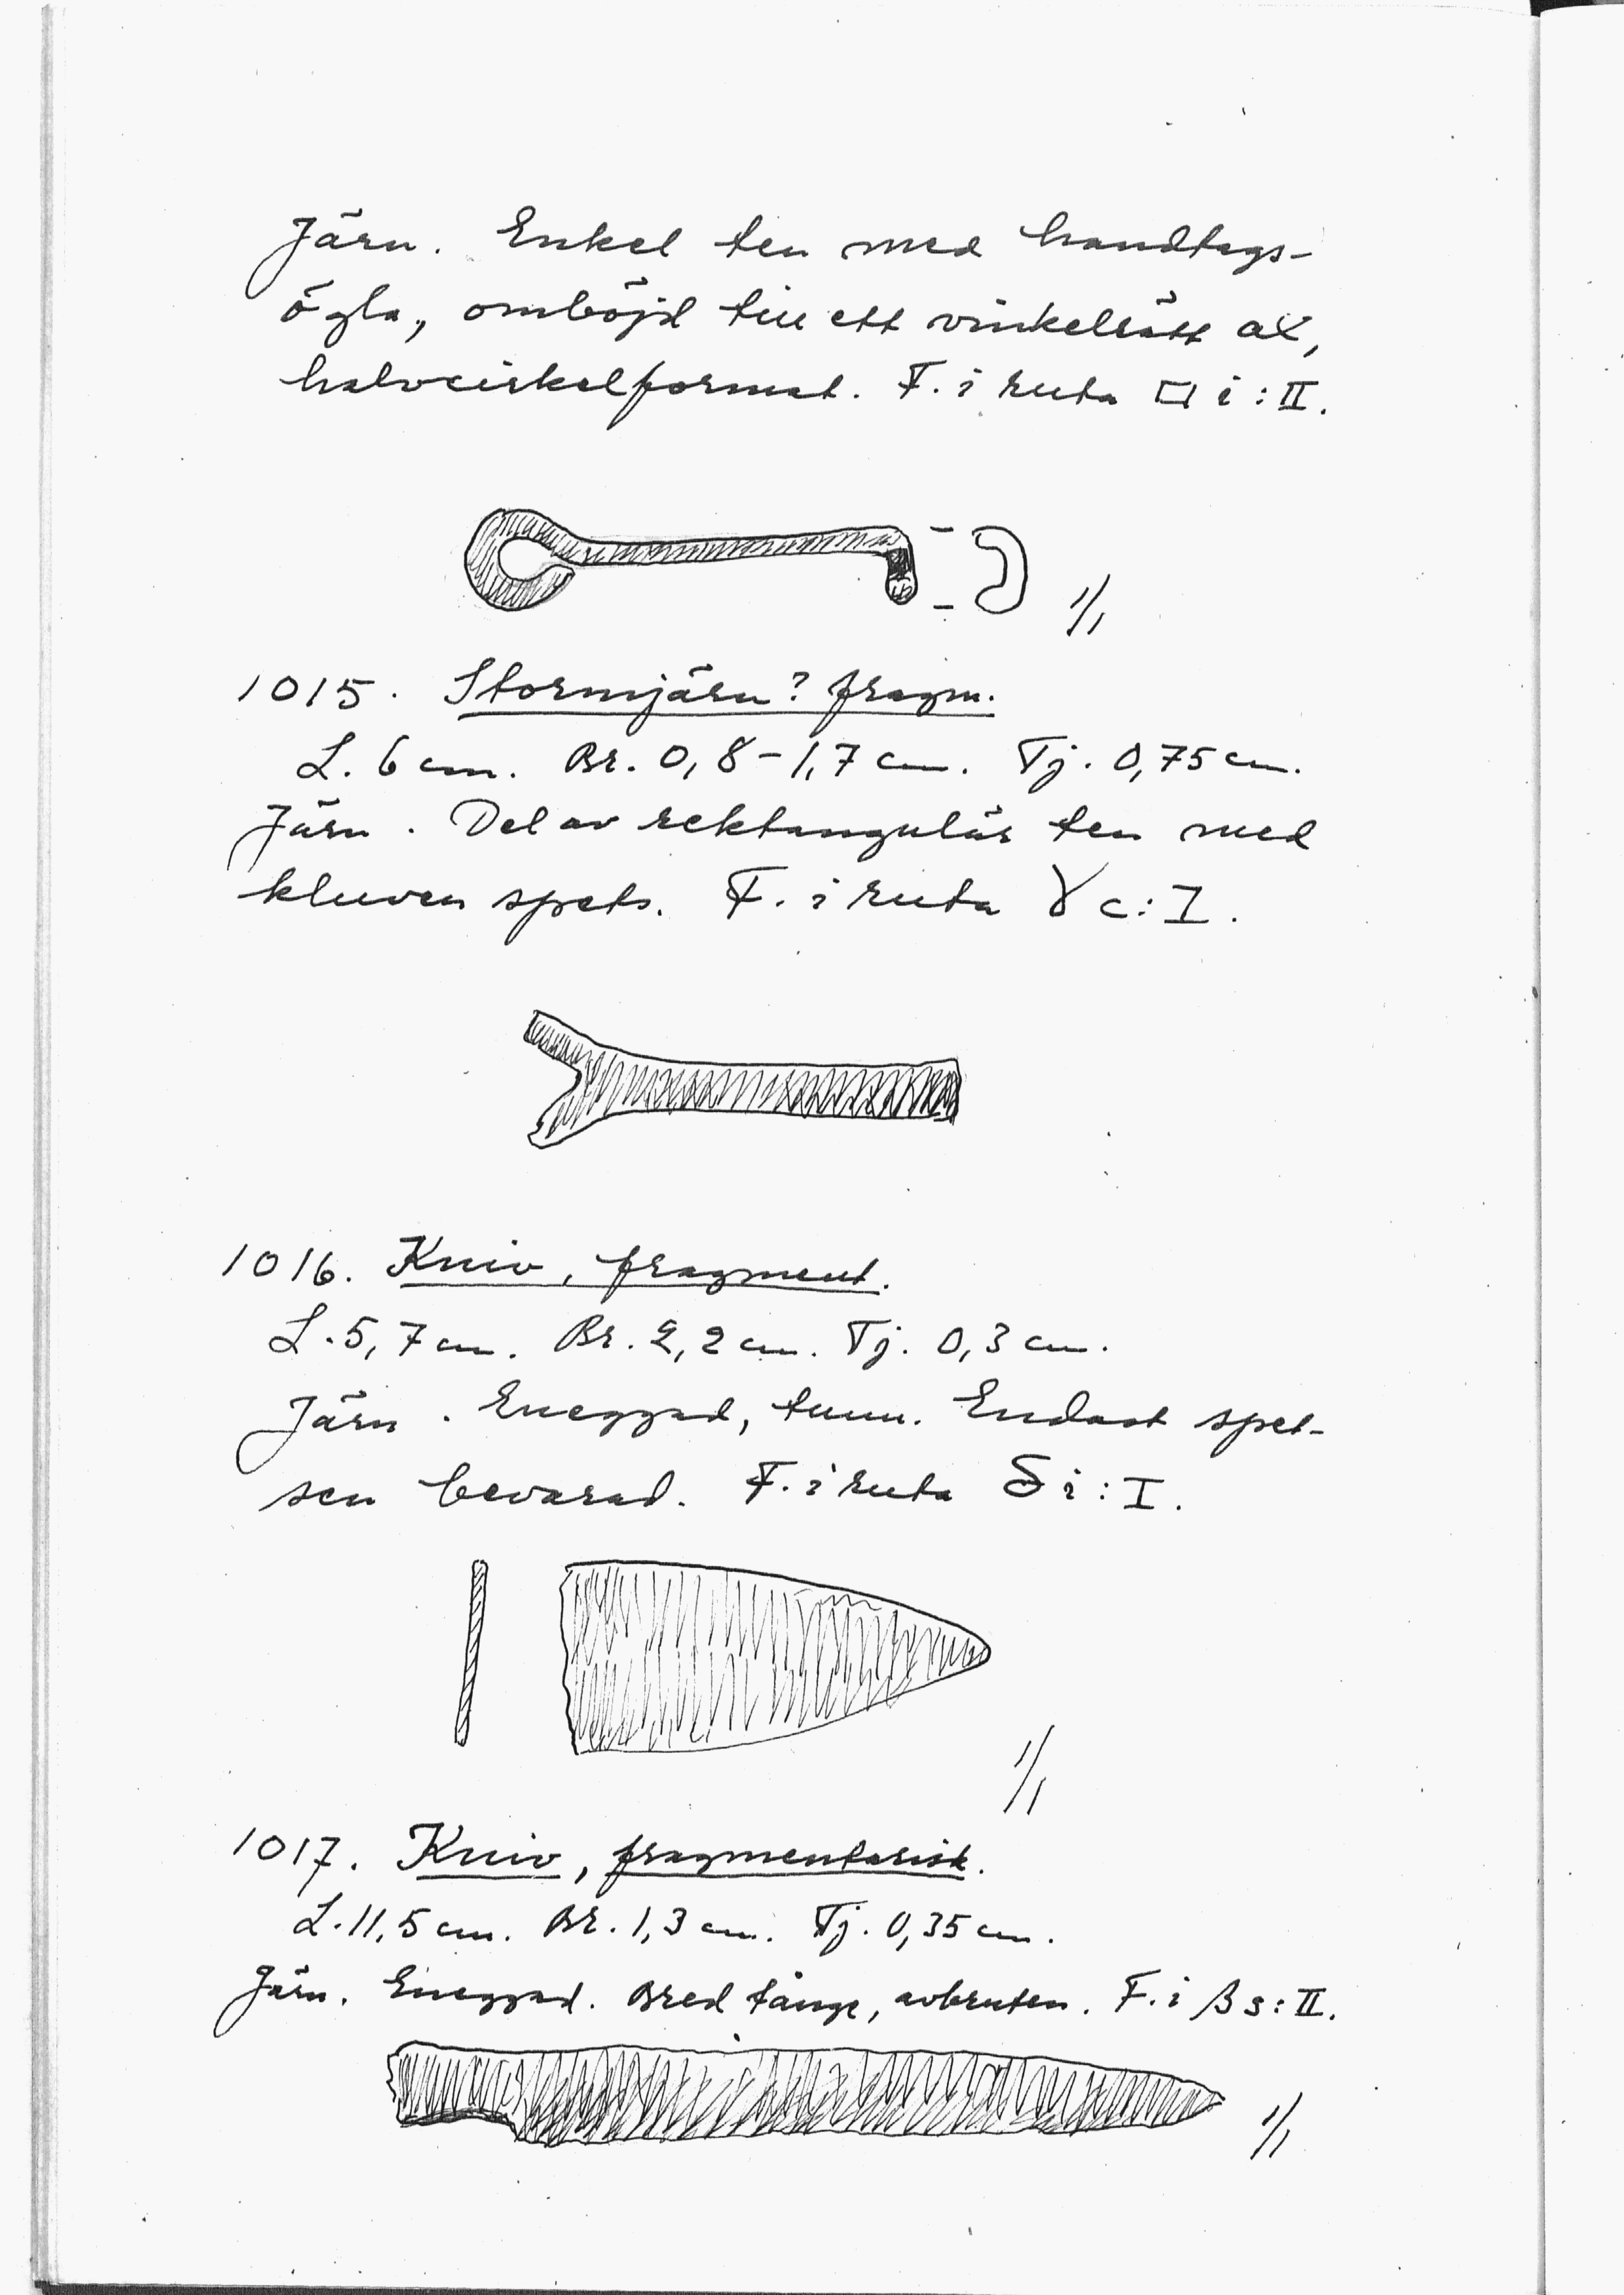 Järn. Enkel ten med handtags-
ögla, omböjd till ett vinkelrätt ax,
halvcirkelformat. F. i ruta □ i : II.
1/1
1015. Stormjärn? fragm.
L. 6 cm. Br. 0,8-1,7 cm. Tj. 0,75 cm.
Järn. Del av rektangulär ten med
kluven spets. F. i ruta γ c : I.
1016. Kniv, fragment.
L. 5,7 cm. Br. 2,2 cm. Tj. 0,3 cm.
Järn. Eneggad, tunn. Endast spet-
sen bevarad. F. i ruta δ i : I.
1/1
1017. Kniv, fragmentarisk.
L. 11,5 cm. Br. 1,3 cm. Tj. 0,35 cm.
Järn. Eneggad. Bred tånge, avbruten. F. i β s : II.
1/1